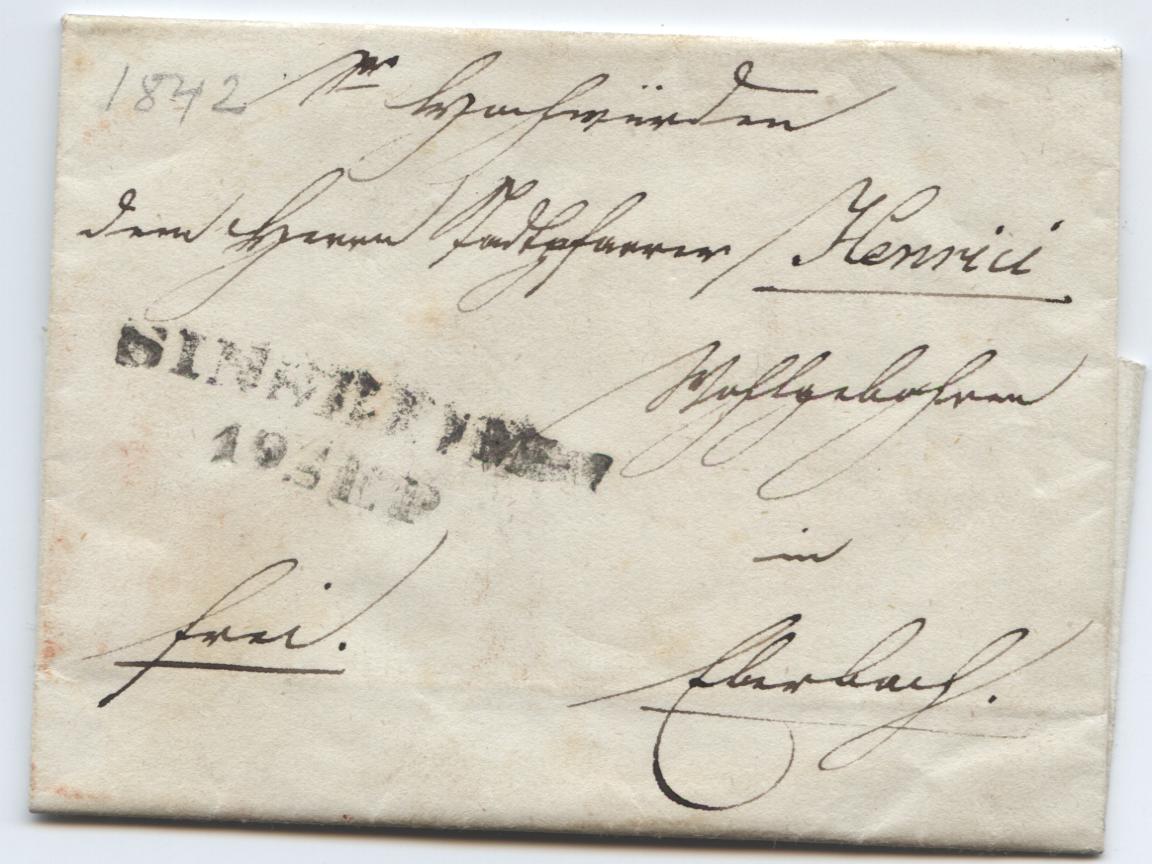 1842
Sr Hochwürden
dem Herrn Stadtpfarrer Henrici
SINSHEIM
19 SEP
Wohlgebohren
in
frei.
Eberbach.